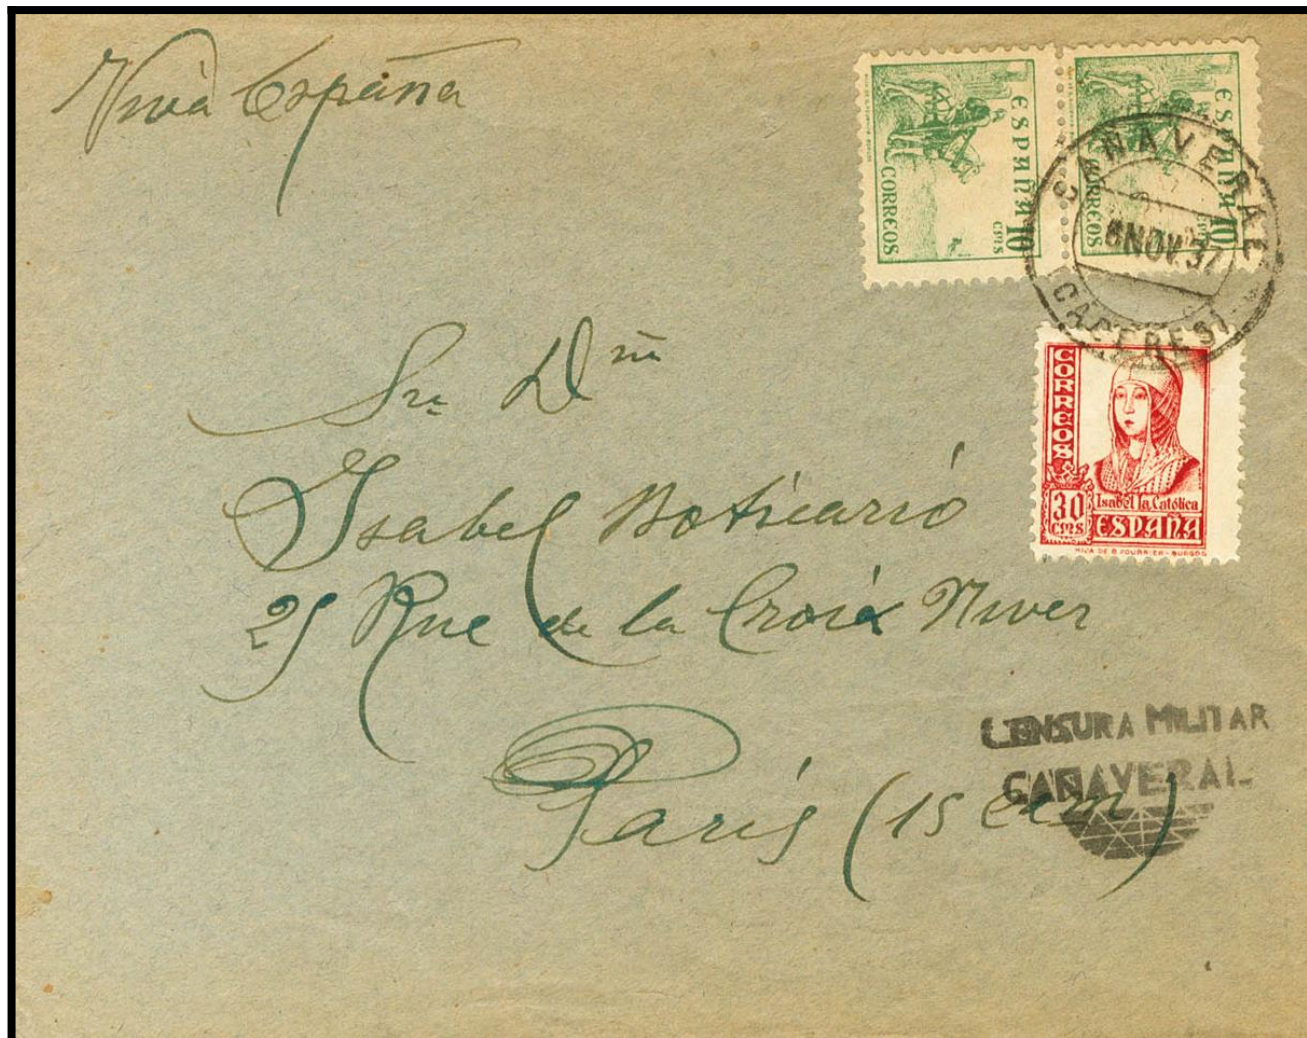 Viva España
ESPAÑA
10
CTMS
CORREOS
ESPAÑA
10
CORREOS
CAÑAVERAL
6 NOV. 37
CÁCERES
CORREOS
30
CTMS
Isabel la Católica
ESPAÑA
HIJA DE B. FOURNIER - BURGOS
Sra Dña
Isabel Boticario
25 Rue de la Croix Niver
París (15 eem)
CENSURA MILITAR
CAÑAVERAL